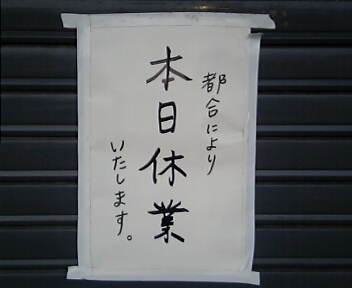 都合により
本日休業
いたします。